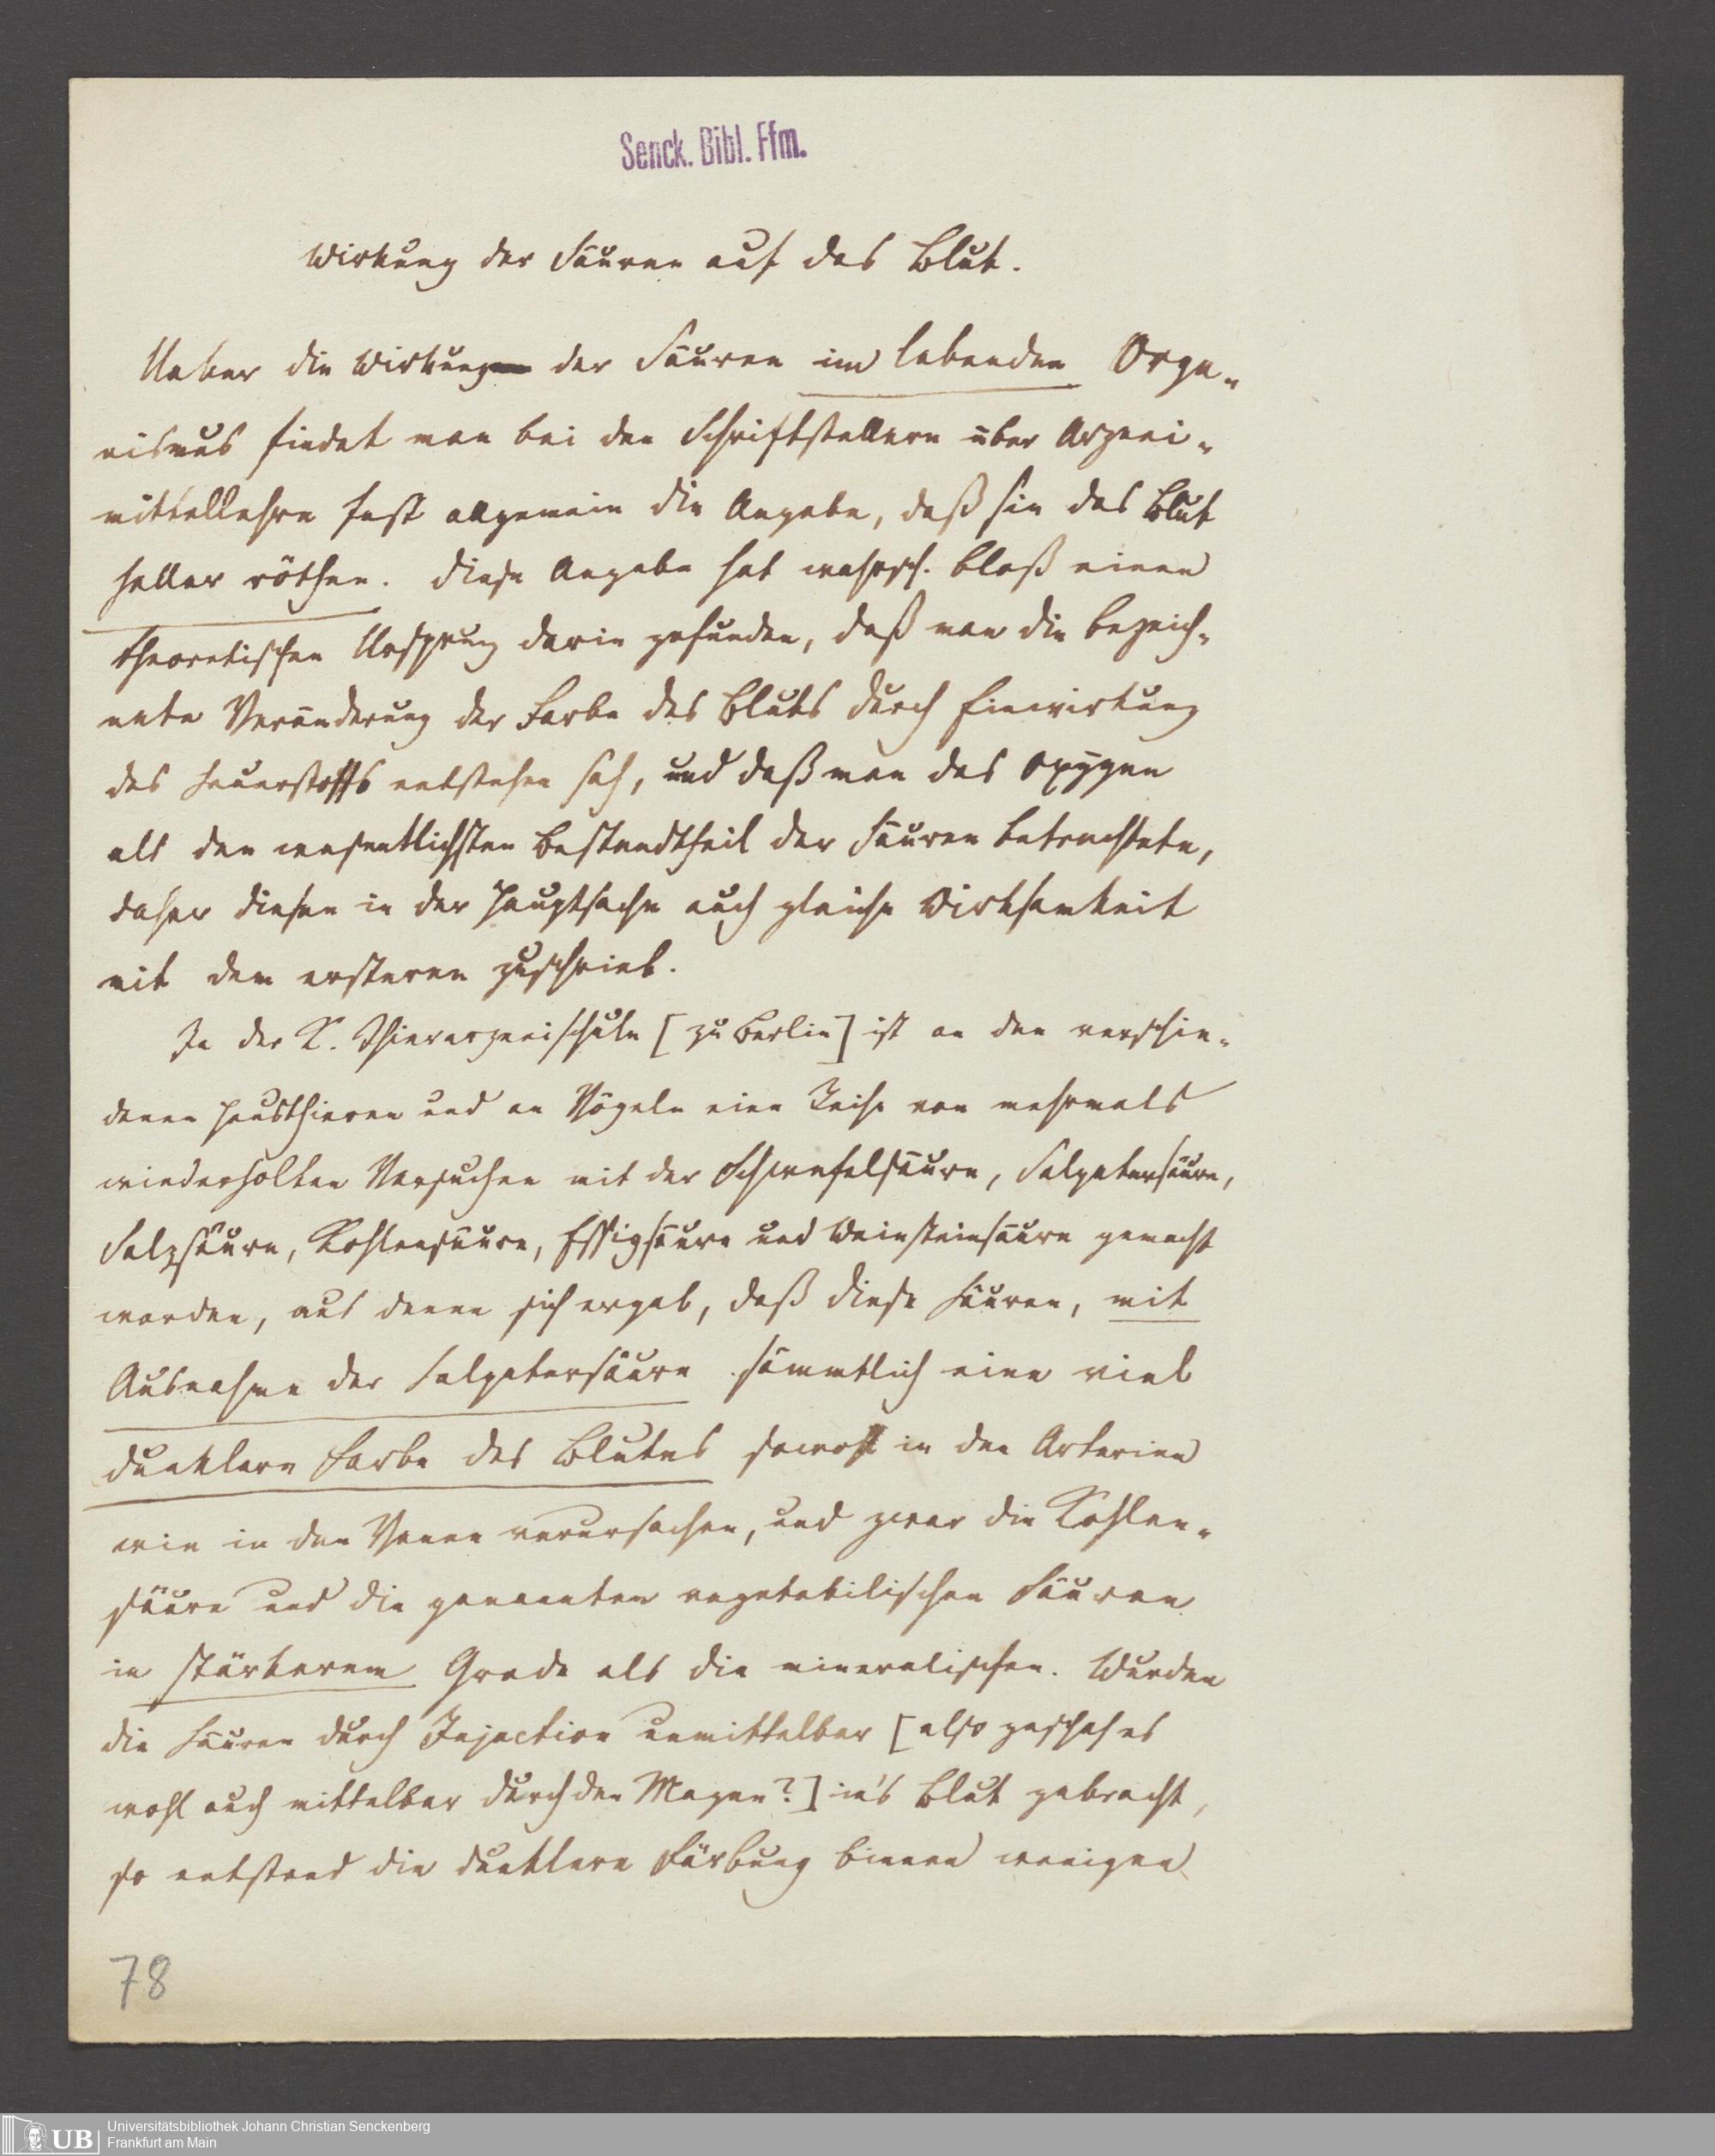 Senck. Bibl. Ffm.
Wirkung der Säuren auf das Blut.
Ueber die Wirkung der Säuren im lebenden Orga-
nismus findet man bei den Schriftstellern über Arznei-
mittellehre fast allgemein die Angabe, daß sie das Blut
heller röthen. Diese Angabe hat wahrsch. bloß einen
theoretischen Ursprung darin gefunden, daß man die bezeich-
nete Veränderung der Farbe des Bluts durch Einwirkung
des Sauerstoffs entstehen sah, und daß man das Oxygen
als den wesentlichsten Bestandtheil der Säuren betrachtete,
daher diesen in der Hauptsache auch gleiche Wirksamkeit
mit dem ersteren zuschrieb.
In der K. Thierarzneischule [zu Berlin] ist an den verschie-
denen Hausthieren und an Vögeln eine Reihe von mehrmals
wiederholten Versuchen mit der Schwefelsäure, Salpetersäure,
Salzsäure, Kohlensäure, Essigsäure und Weinsteinsäure gemacht
worden, aus denen sich ergab, daß diese Säuren, mit
Ausnahme der Salpetersäure sämmtlich eine viel
dunklere Farbe des Blutes sowohl in den Arterien
wie in den Venen verursachen, und zwar die Kohlen-
säure und die genannten vegetabilischen Säuren
in stärkerem Grade als die mineralischen. Wurden
die Säuren durch Injection unmittelbar [also geschah es
wohl auch mittelbar durch den Magen?] in's Blut gebracht,
so entstand die dunklere Färbung binnen wenigen
78
UB
Universitätsbibliothek Johann Christian Senckenberg
Frankfurt am Main